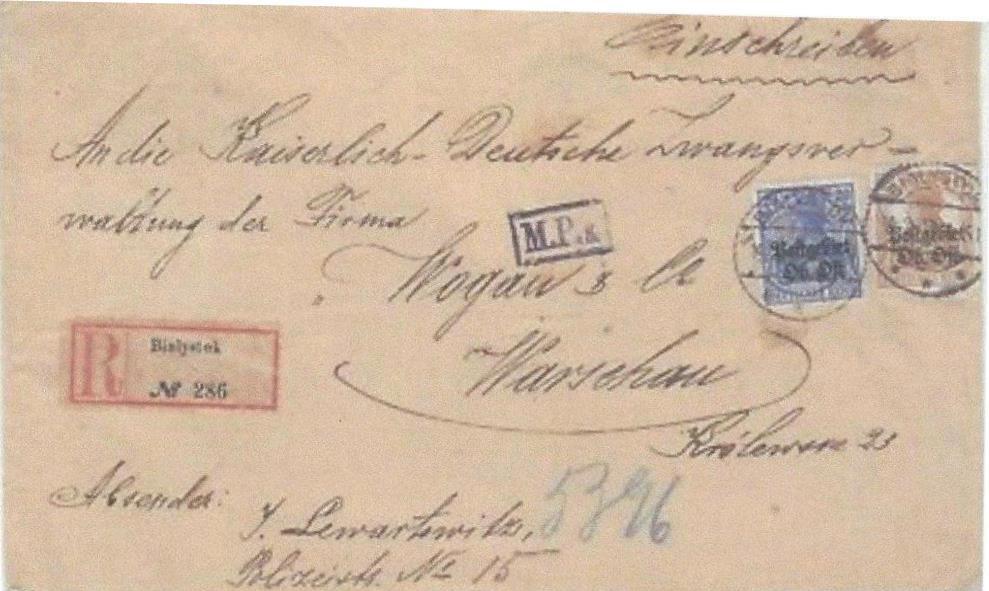 Einschreiben
An die Kaiserlich-Deutsche Zwangsver-
waltung der Firma
M.P.
Postgebiet
Ob. Ost
Postgebiet
Ob. Ost
Wogau & Co
R
Bialystok
№ 286
Warschau
Królewska 23
Absender:
J. Lewartowitz,
5396
Polizeistr. № 15